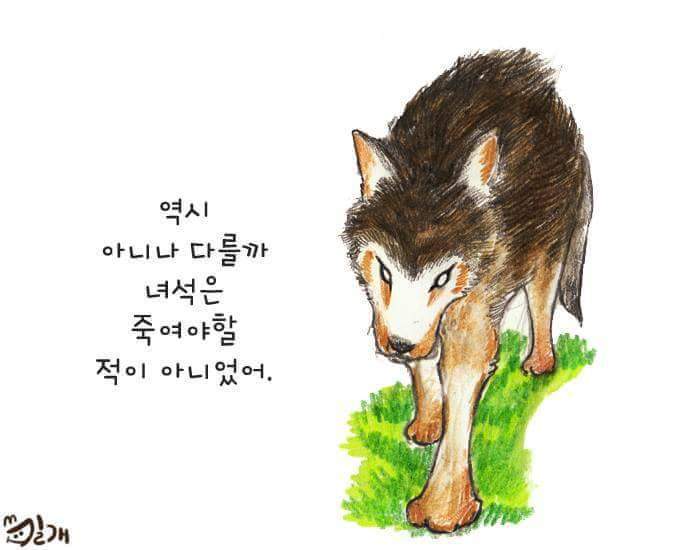 역시
아니나 다를까
녀석은
죽여야할
적이 아니었어.
일개